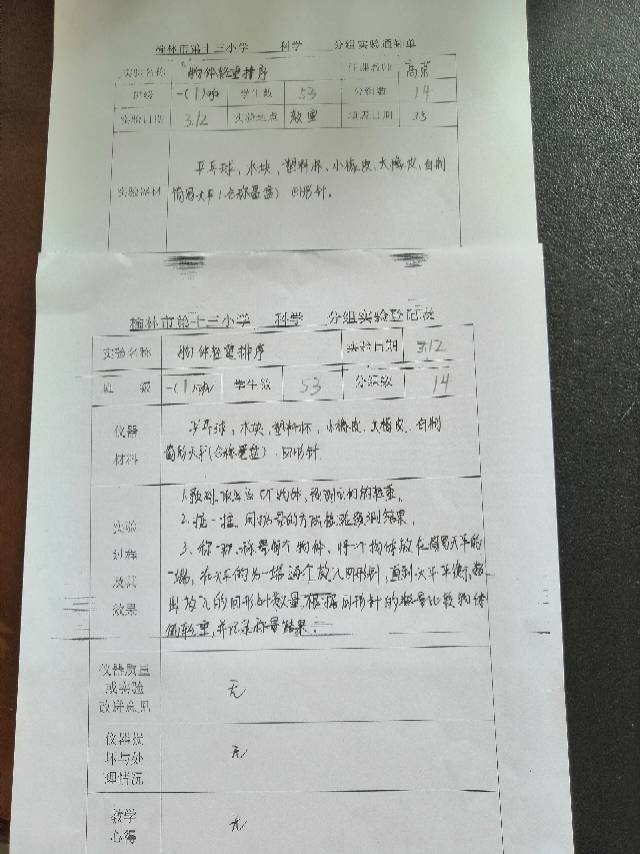 榆林市第十三小学 科学 分组实验通知单
实验名称 物体轻重排序 任课教师
班级 一(1) 学生数 53 分组数 14
实验日期 3.12 实验地点 教室 填表日期
乒乓球、木块、塑料杯、小橡皮、大橡皮、自制
实验器材
简易天平(含称量盘) 回形针。
榆林市第十三小学 科学 分组实验登记表
实验名称 物体轻重排序 实验日期 3.12
班级 一(1) 学生数 53 分组数 14
仪器 乒乓球、木块、塑料杯、小橡皮、大橡皮、自制
材料 简易天平(含称量盘)、回形针
1.预测 物体,预测它们的轻重。
实验 2.掂一掂。用掂量的方法检验预测结果。
过程 3.称一称。称量每个物体,将一个物体放在简易天平的
及其 一端,在天平的另一端逐个放入回形针,直到天平平衡,
效果 放入的回形针数量,根据回形针的数量比较物体
的轻重,并记录称量结果。
仪器质量
或实验 无
改进意见
仪器损
坏与处 无
理情况
教学
心得 无